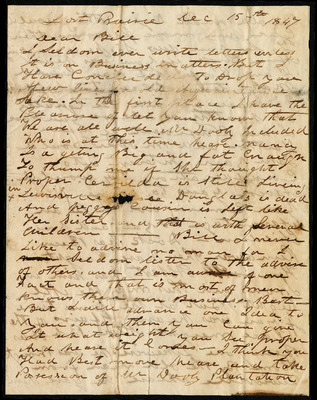 Lost Prairie Dec 15th 1847
Dear Bill
I Seldom ever write letters unless
It is on Business matters. But I
Have Concluded To Drop you
a few lines
take. in the first place I have the
Pleasure of let you know that
We are all well Mr Dooly Included
Who is at this time hear. Nancy
is a geting Big and fat Enough
To thump me if She thought
Proper Cerilda is Still Living
in
Douglass is dead
And Peggy Cousin is left like
Her Sister and is with Several
Children Bill I never
Like to advise no man for I
Seldom listen to the advise
of others and I am of one
fact and that is most of men
knows their own Business Best
But I will advance one Idea to
you and then you Can give
it what weight you See proper
And hear it Comes I think you
Had Best move hear and take
Possession of Mr Dooly Plantation